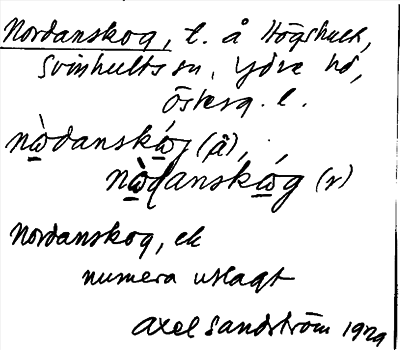 Nordanskog, t. å Högshult,
Svinhults sn, Ydre hd,
Östergl.
nὼdanskώg (ä),
nὼdanskώg (r)
Nordanskog, ek
numera utlagt
Axel Sandström 1929